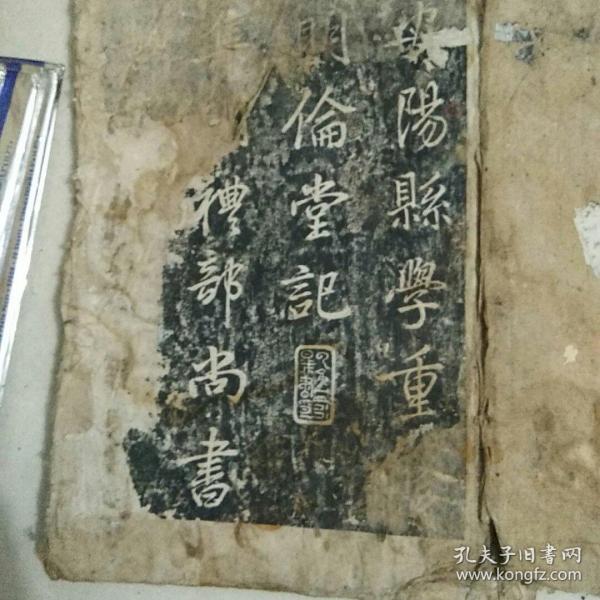 陽縣學重
明倫堂記
禮部尚書
孔夫子旧书网
www.kongfz.com